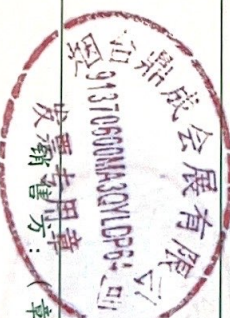 台鼎成会展有限公司
91370600MA3QYLDP64
发票专用章
销售方：（章